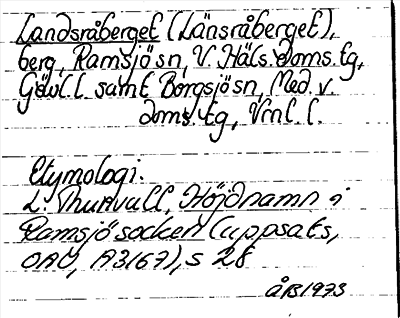 Landsråberget (Länsråberget),
berg, Ramsjö sn, V. Häls. doms. tg,
Gävl. l. samt Borgsjö sn, Med. v.
doms. tg, Vrnl. l.
Etymologi:
L. Thunvall, Höjdnamn i
Ramsjö socken (uppsats,
OAU, A3167), s 28
ÅB 1973